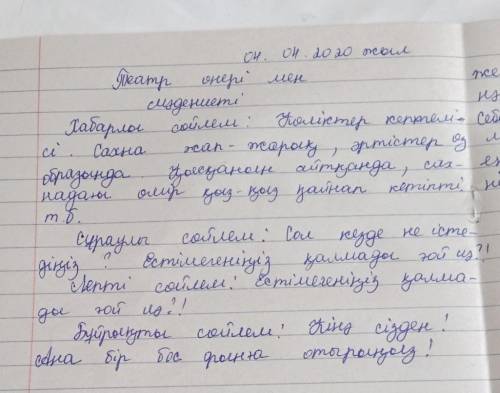 04. 04. 2020 жыл
Театр өнері мен
мәдениеті
Хабарлы сөйлем: Көліктер кептелі-
сі. Сахна жап-жарық, әртістер өз
образында. Қысқасын айтқанда, сах-
надағы өмір қыз-қыз қайнап кетіпті,
т.б.
Сұраулы сөйлем: Сол кезде не істе-
діңіз? Естімегеніңіз қалмады ғой из?!
Лепті сөйлем: Естімегеніңіз қалма-
ды ғой из?!
Бұйрықты сөйлем: Кінә сізден!
Ана бір бос орынға отырыңыз!